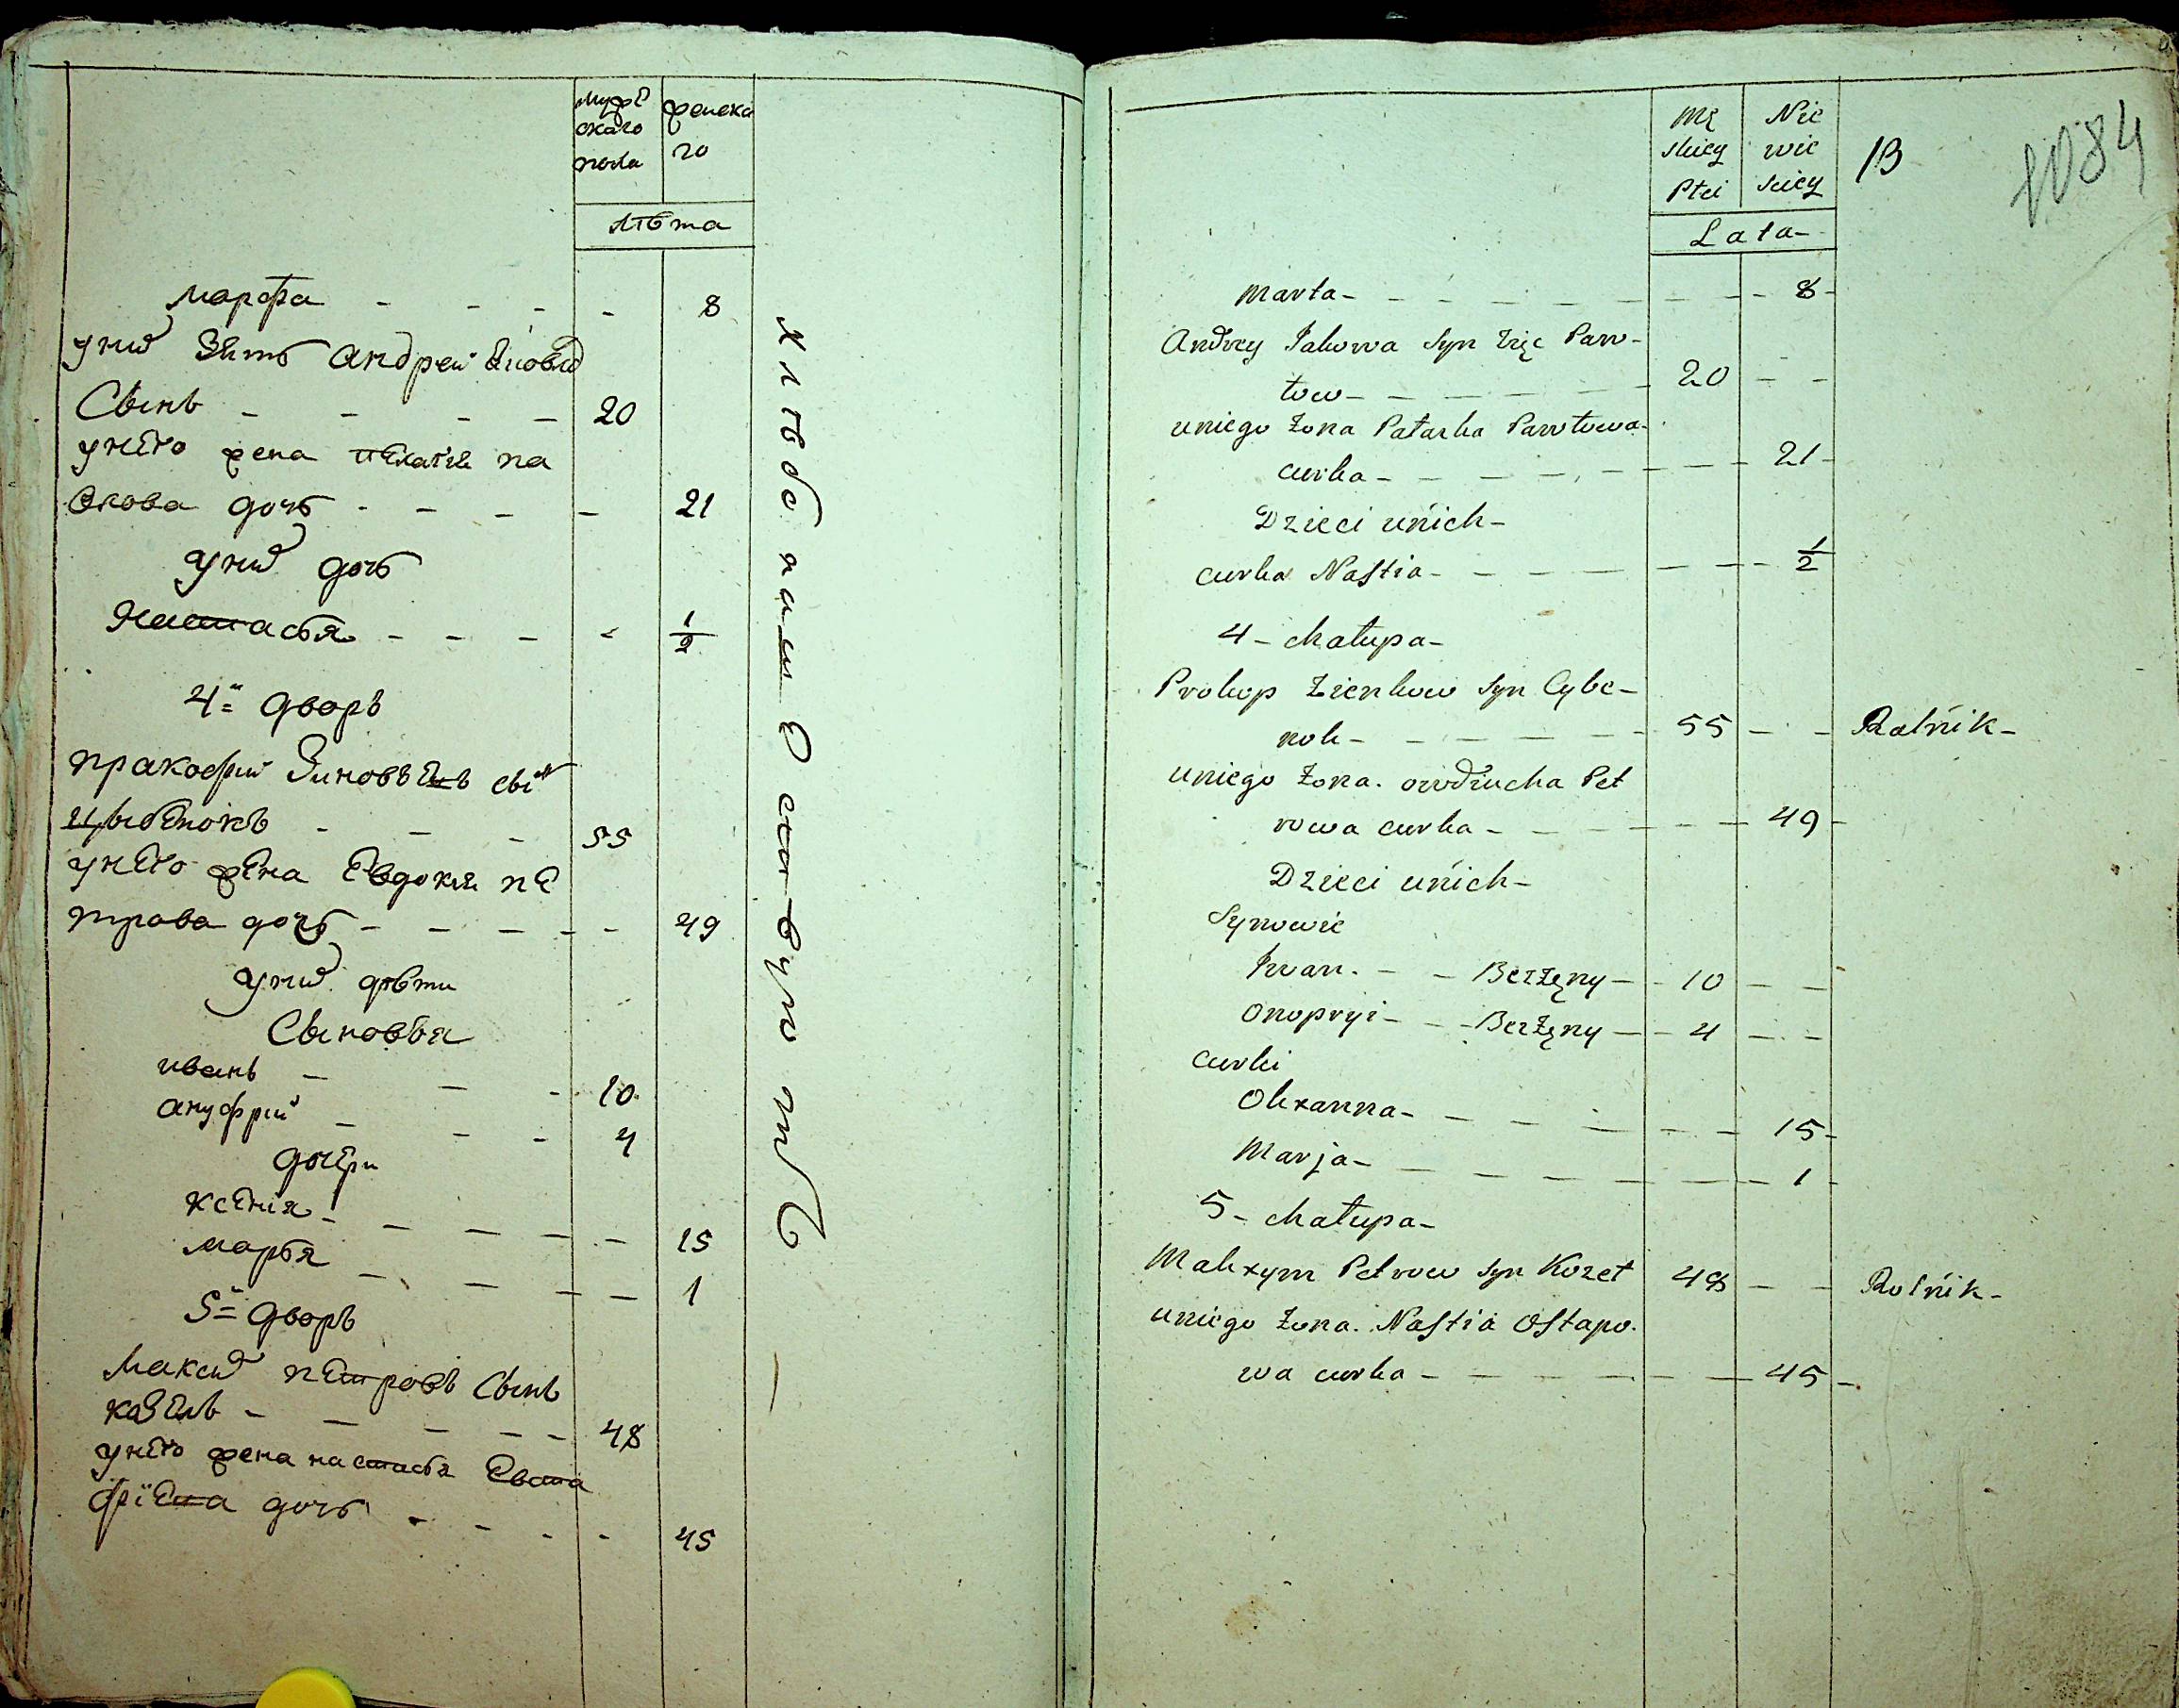 мужѐ
скаго
пола
женска
го
лѣта
марфа - - - - 8
уних зять андрей яковлѐ
Сынъ - - - - 20
унѐго жена пѐлагѣя па
влова дочь - - - - 21
уних дочь
Настасья - - - - 1/2
4й дворъ
пракофий Зиновѣѐвъ сынъ
цыбѐнокъ - - - 55
унѐго жѐна Евдокия пѐ
трова дочь - - - - - 49
уних дѣти
Сыновья
иванъ - - - 10
ануфрий - - - 4
дочѐри
ксѐния - - - - - 15
марья - - - - 1
5й дворъ
Максим пѐтровъ Сынъ
казѐлъ - - - - - 48
унѐго жена настасья Ѐвста
фиѐва дочь - - - - 45
Mę
skiey
Płci
Nie
wie
sciey
13
1084
Lata
Marta - - - - - - - - 8 -
Andrey Jakowa Syn Zięc Paw-
low - - - - - - 20 - -
uniego Zona Pałaska Pawłowa
curka - - - - - - - 21 -
Dzieci unich -
curka Nastia - - - - - - - 1/2
4 - chałupa -
Prokop Zienkow Syn Cybe-
nok - - - - - - 55 - - Rolnik -
uniego Zona. owdziucha Pet
rowa curka - - - - - - 49 -
Dzieci unich -
Synowie
Iwan. - - Bezżęny - - 10 - -
Onopryi - - - Bezżęny - - 4 - -
curki
Olexanna - - - - - - - 15 -
Marja - - - - - - - - 1 -
5 - chałupa -
Makxym Petrow Syn Kozeł 48 - - Rolnik -
uniego Zona. Nastia Ostapo.
wa curka - - - - - - - 45 -